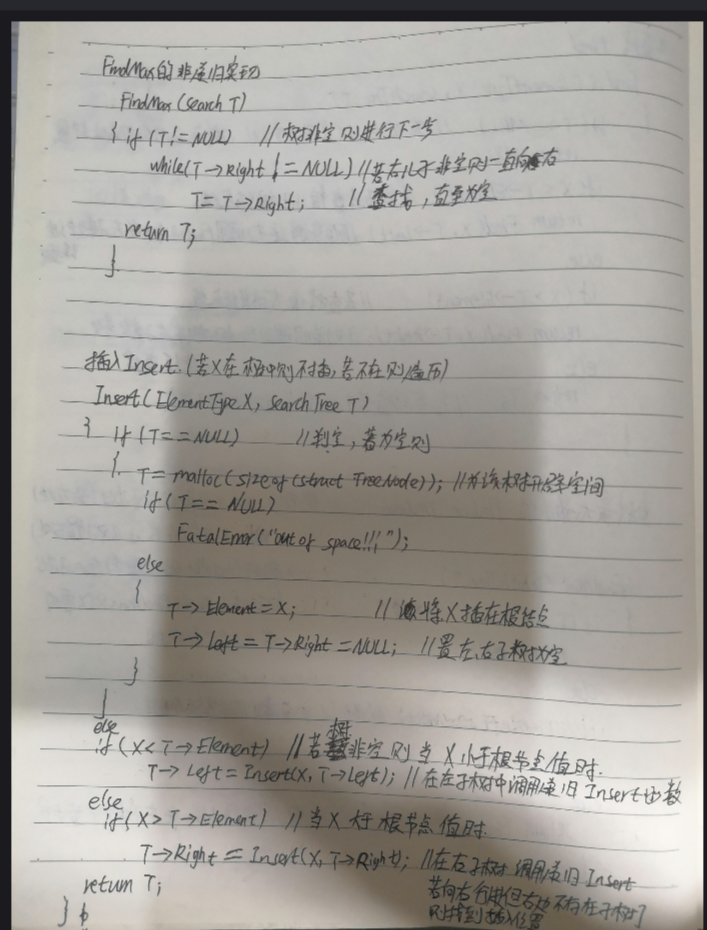 FindMax的非递归实现
FindMax (Search T)
{ if (T!= NULL) //树非空则进行下一步
while(T→Right != NULL) //若右儿子非空则一直向右
T= T→Right; //查找,直至为空
return T;
}
插入Insert.(若X在树中则不插,若不在则遍历)
Insert(ElementType X, SearchTree T)
{ if (T==NULL) //判空,若为空则
{ T= malloc(size of (struct TreeNode)); //为该树开辟空间
if (T== NULL)
FatalError("out of space!!!");
else
{
T→Element=X; //将X插在根结点
T→Left=T→Right=NULL; //置左、右子树为空
}
}
else
if (X<T→Element) //若树非空则当X小于根节点值时.
T→Left=Insert(X, T→Left); //在左子树中调用递归Insert函数
else
if (X>T→Element) //当X大于根节点值时
T→Right = Insert(X, T→Right); //在右子树调用递归Insert
return T; 若向右行进但右边不存在子树
} 则找到插入位置